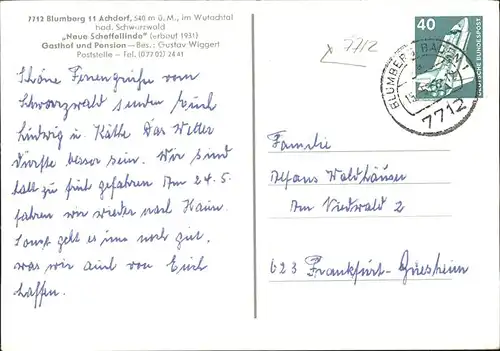 7712 Blumberg 11 Achdorf, 540 m ü. M., im Wutachtal
bad. Schwarzwald
„Neue Scheffellinde" (erbaut 1931)
Gasthof und Pension — Bes.: Gustav Wiggert
Poststelle — Tel. (07702) 2441
Schöne Feriengrüße vom
Schwarzwald senden Euch
Ludwig u. Käthe Das Wetter
dürfte besser sein. Wir sind
halt zu früh gefahren Am 24.5.
fahren wir wieder nach Heim.
Sonst geht es uns noch gut,
was wir auch von Euch
hoffen.
x 7712
40
DEUTSCHE BUNDESPOST
BLUMBERG, BADEN 1
7712
Familie
Alfons Waldhäuser
Am Viedwald 2
623 Frankfurt-Griesheim